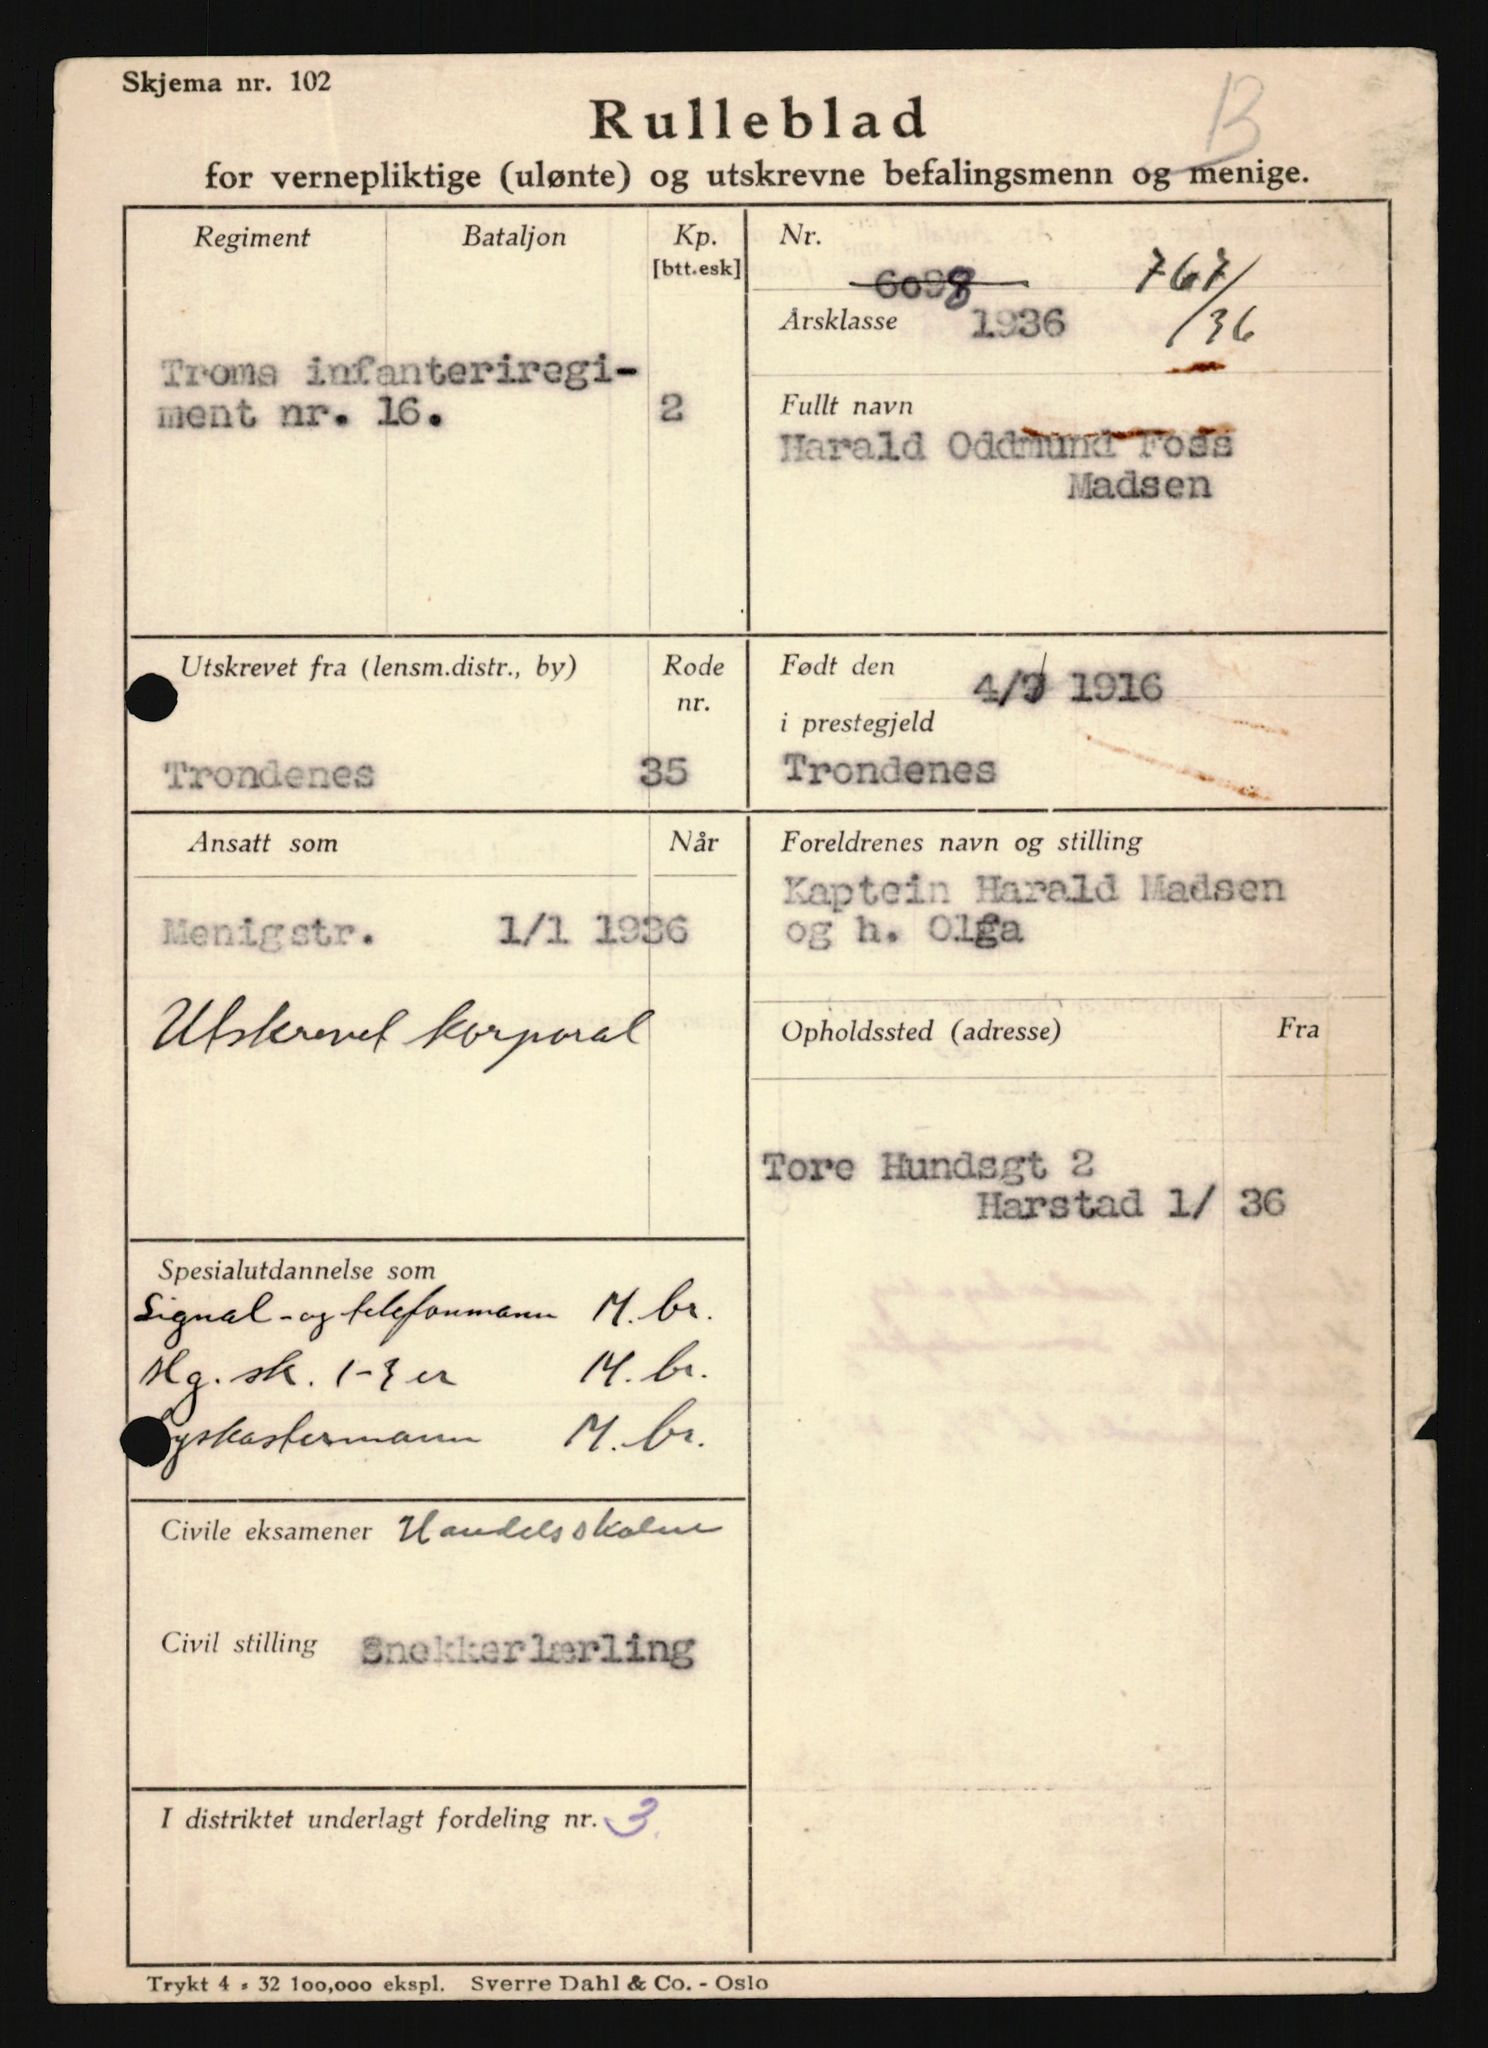 Skjema nr. 102
B
Rulleblad
for vernepliktige (ulønte) og utskrevne befalingsmenn og menige.
Regiment
Bataljon
Kp.
[btt.esk]
Troms infanteriregi-
ment nr. 16.
2
Nr.
6098
767/36
Årsklasse 1936
Fullt navn
Harald Oddmund Foss
Madsen
Utskrevet fra (lensm.distr., by)
Rode
nr.
Trondenes
35
Født den
4/ 1916
i prestegjeld
Trondenes
Ansatt som
Når
Menigstr. 1/1 1936
Utskrevet korporal
Foreldrenes navn og stilling
Kaptein Harald Madsen
og h. Olga
Opholdssted (adresse)
Fra
Tore Hundsgt 2
Harstad 1/ 36
Spesialutdannelse som
Signal- og telefonmann M. br.
Mg. sk. 1-3 er M. br.
Lyskastermann M. br.
Civile eksamener Handelsskolen
Civil stilling Snekkerlærling
I distriktet underlagt fordeling nr. 3.
Trykt 4 - 32 100,000 ekspl. Sverre Dahl & Co. - Oslo